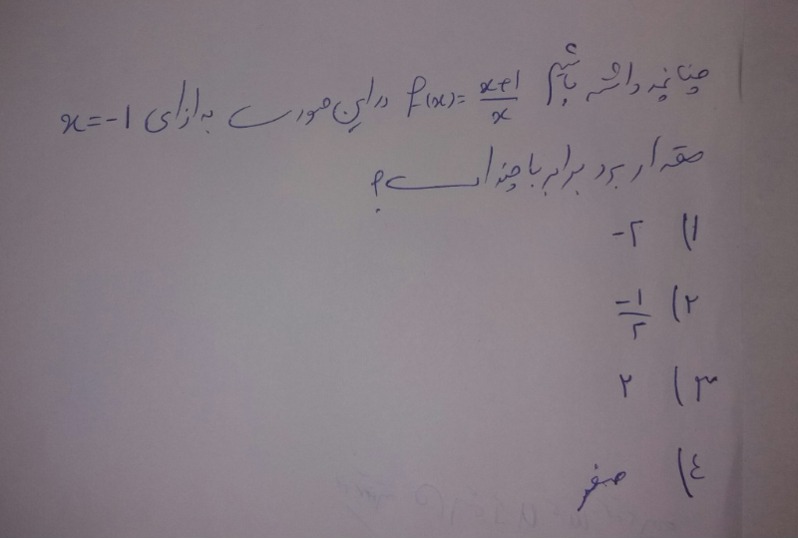 چنانچه داشته باشیم f(x)= x+1/x در این صورت به ازای x=-1
مقدار برد برابر با چند است؟
1) -2
2) -1/2
3) 2
4) صفر